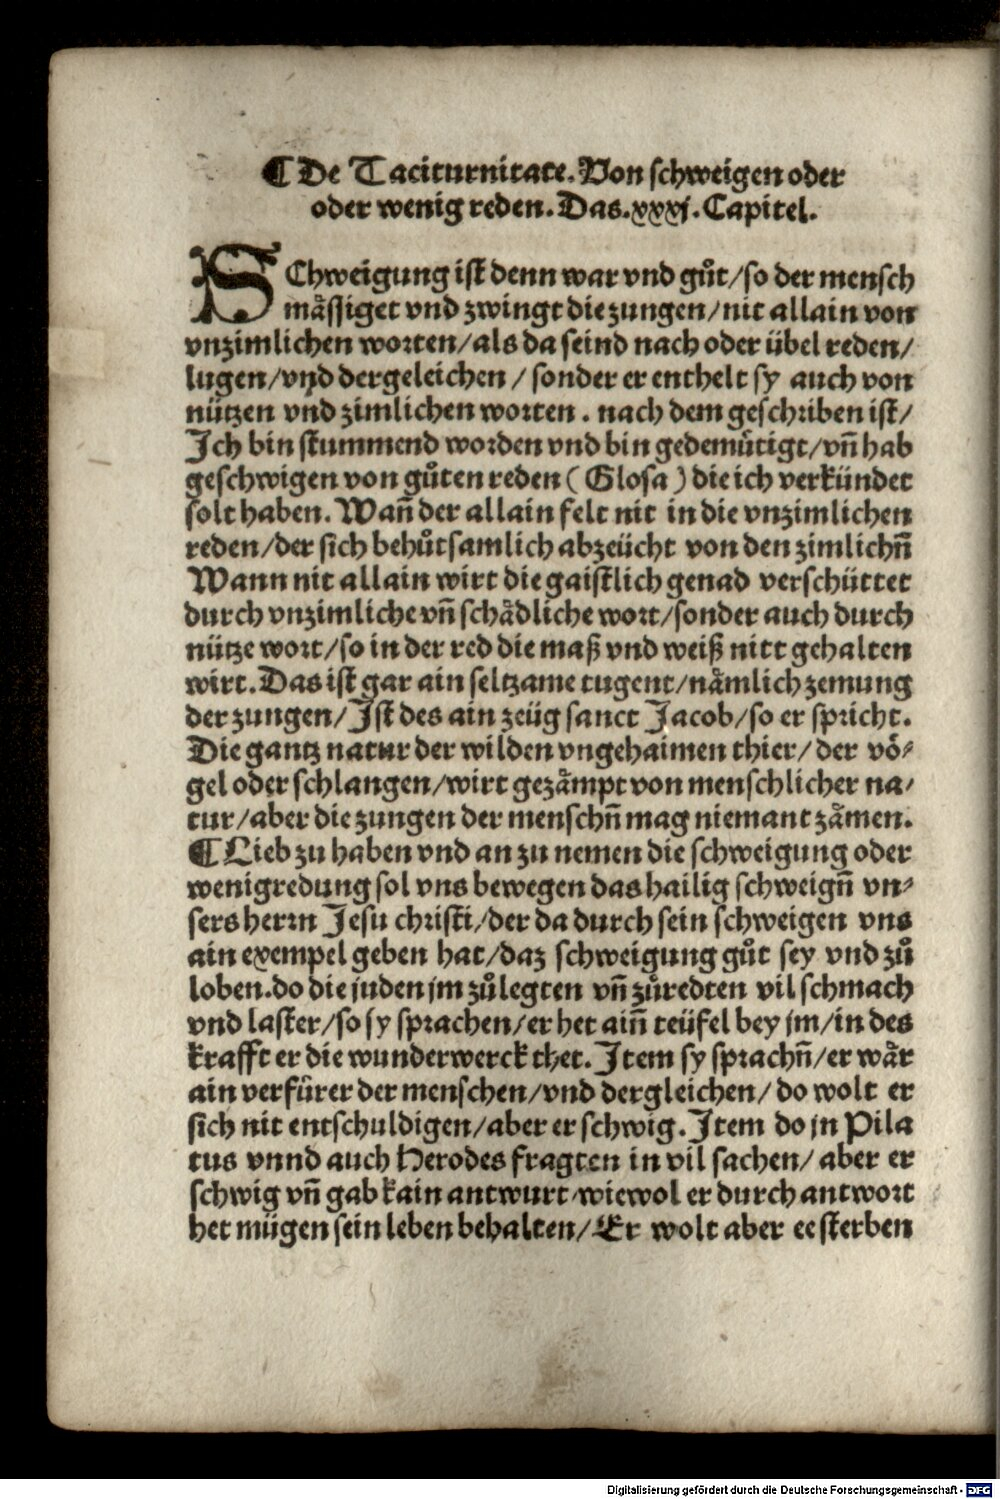 ¶ De Taciturnitate. Von schweigen oder
oder wenig reden. Das. xxxj. Capitel.
SChweigung ist denn war vnd gůt/ so der mensch
mässiget vnd zwingt die zungen/ nit allain von
vnzimlichen worten/ als da seind nach oder übel reden/
lugen/ vnd dergeleichen / sonder er enthelt sy auch von
nützen vnd zimlichen worten . nach dem geschriben ist/
Ich bin stummend worden vnd bin gedemütigt/ vñ hab
geschwigen von gůten reden ( Glosa ) die ich verkündet
solt haben. Wañ der allain felt nit in die vnzimlichen
reden/ der sich behůtsamlich abzeücht von den zimlichñ
Wann nit allain wirt die gaistlich genad verschüttet
durch vnzimliche vñ schädliche wort/ sonder auch durch
nütze wort/ so in der red die maß vnd weiß nitt gehalten
wirt. Das ist gar ain seltzame tugent/ nämlich zemung
der zungen/ Ist des ain zeüg sanct Jacob/ so er spricht.
Die gantz natur der wilden vngehaimen thier/ der vö⸗
gel oder schlangen/ wirt gezämpt von menschlicher na/
tur/ aber die zungen der menschñ mag niemant zämen.
¶ Lieb zu haben vnd an zu nemen die schweigung oder
wenigredung sol vns bewegen das hailig schweigñ vn⸗
sers herrn Jesu christi/ der da durch sein schweigen vns
ain exempel geben hat/ daz schweigung gůt sey vnd zů
loben. do die juden jm zů legten vñ zůredten vil schmach
vnd laster/ so sy sprachen/ er het aiñ teüfel bey jm/ in des
krafft er die wunderwerck thet. Item sy sprachñ/ er wär
ain verfürer der menschen/ vnd dergleichen/ do wolt er
sich nit entschuldigen/ aber er schwig. Item do jn Pila
tus vnnd auch Herodes fragten in vil sachen/ aber er
schwig vñ gab kain antwurt/ wiewol er durch antwort
het mügen sein leben behalten/ Er wolt aber ee sterben
Digitalisierung gefördert durch die Deutsche Forschungsgemeinschaft - DFG